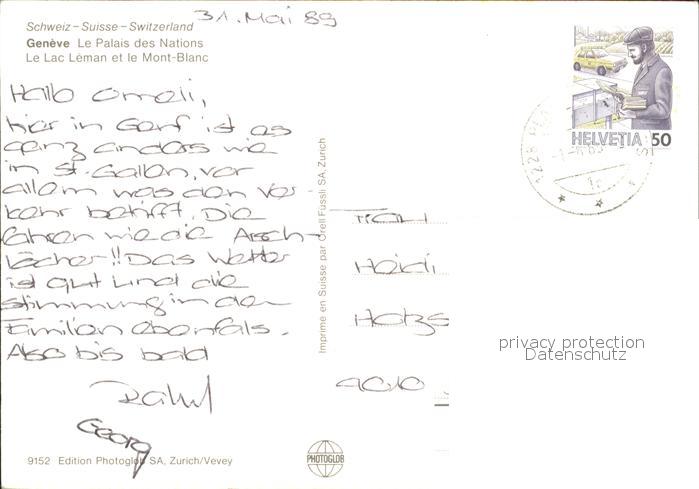 31. Mai 89
Schweiz – Suisse – Switzerland
Genève Le Palais des Nations
Le Lac Léman et le Mont-Blanc
Hallo Omeli,
hier in Genf ist es
ganz anders wie
in St. Gallen, vor
allem was den Ver-
kehr betrifft. Die
fahren wie die Arsch-
löcher!! Das Wetter
ist gut und die
Stimmung in den
Familien ebenfals.
Also bis bald
Georg
9152 Edition Photoglob SA, Zurich/Vevey
Imprimé en Suisse par Orell Füssli SA, Zurich
PHOTOGLOB
HELVETIA 50
Frau
Heidi
9010
privacy protection
Datenschutz